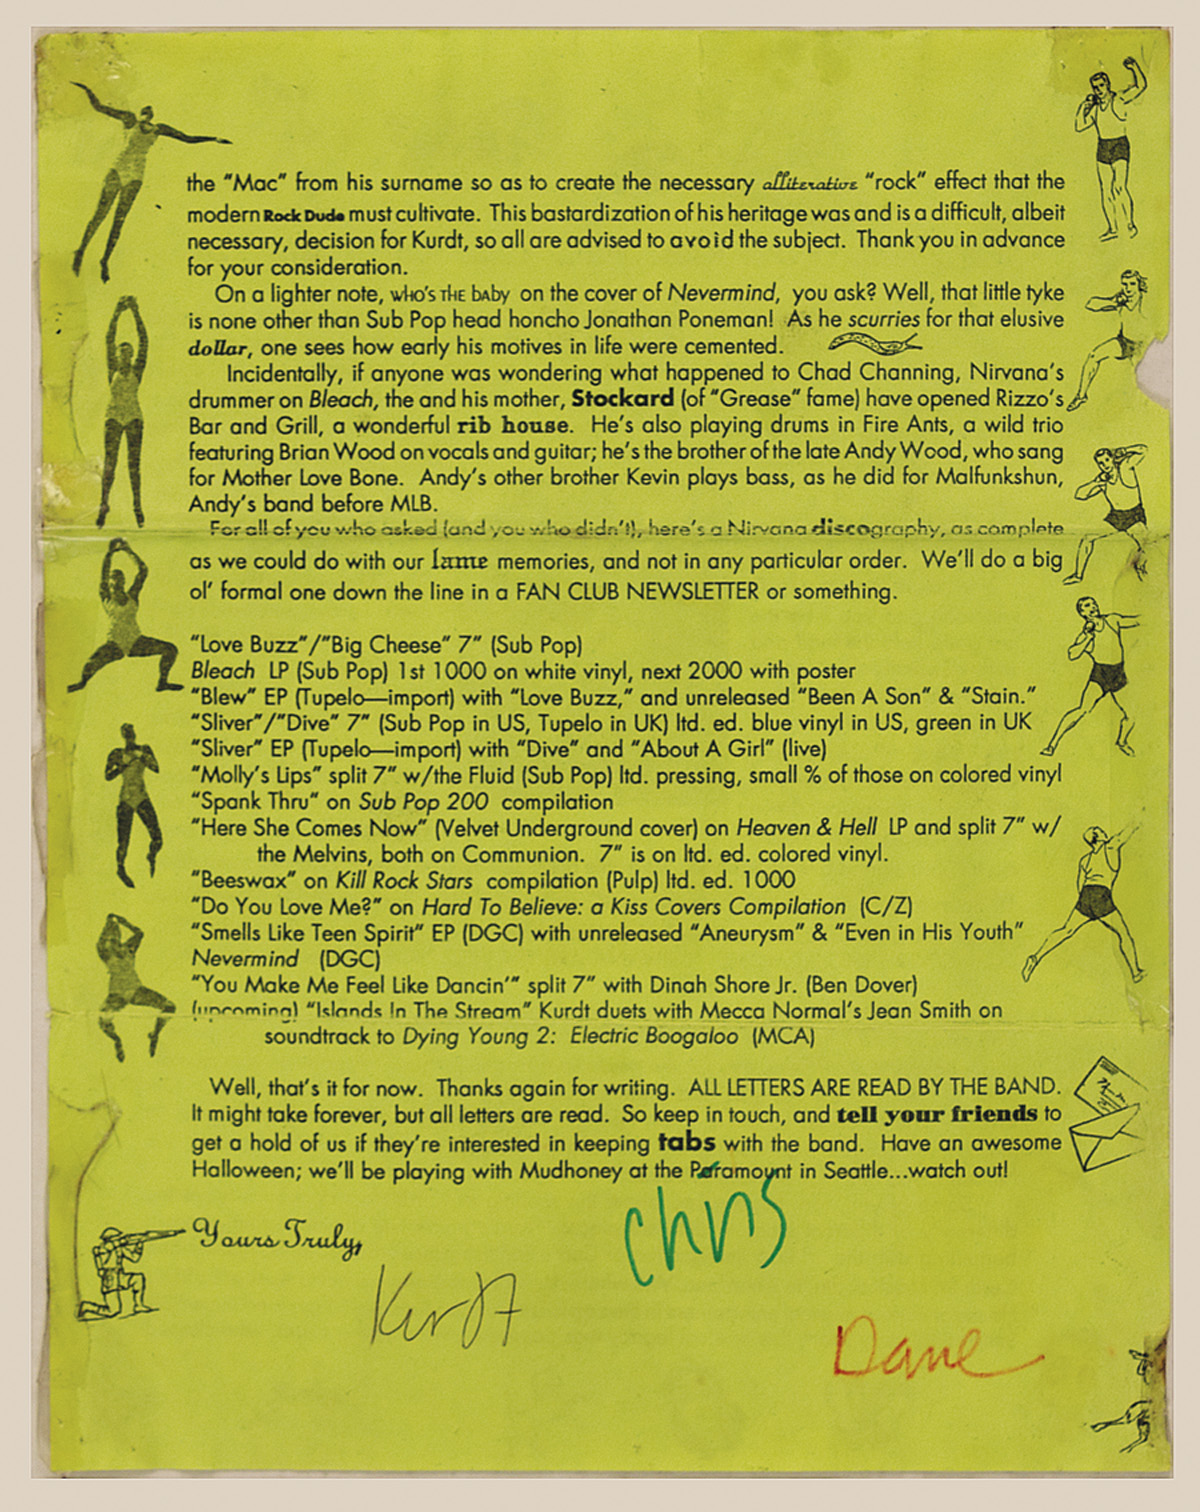 the “Mac” from his surname so as to create the necessary alliterative “rock” effect that the
modern Rock Dude must cultivate. This bastardization of his heritage was and is a difficult, albeit
necessary, decision for Kurdt, so all are advised to avoid the subject. Thank you in advance
for your consideration.
On a lighter note, WHO'S THE BABY on the cover of Nevermind, you ask? Well, that little tyke
is none other than Sub Pop head honcho Jonathan Poneman! As he scurries for that elusive
dollar, one sees how early his motives in life were cemented.
Incidentally, if anyone was wondering what happened to Chad Channing, Nirvana's
drummer on Bleach, the and his mother, Stockard (of “Grease” fame) have opened Rizzo's
Bar and Grill, a wonderful rib house. He's also playing drums in Fire Ants, a wild trio
featuring Brian Wood on vocals and guitar; he's the brother of the late Andy Wood, who sang
for Mother Love Bone. Andy's other brother Kevin plays bass, as he did for Malfunkshun,
Andy's band before MLB.
For all of you who asked (and you who didn't!), here's a Nirvana discography, as complete
as we could do with our lame memories, and not in any particular order. We'll do a big
ol' formal one down the line in a FAN CLUB NEWSLETTER or something.
“Love Buzz”/”Big Cheese” 7” (Sub Pop)
Bleach LP (Sub Pop) 1st 1000 on white vinyl, next 2000 with poster
“Blew” EP (Tupelo—import) with “Love Buzz,” and unreleased “Been A Son” & “Stain.”
“Sliver”/”Dive” 7” (Sub Pop in US, Tupelo in UK) ltd. ed. blue vinyl in US, green in UK
“Sliver” EP (Tupelo—import) with “Dive” and “About A Girl” (live)
“Molly's Lips” split 7” w/the Fluid (Sub Pop) ltd. pressing, small % of those on colored vinyl
“Spank Thru” on Sub Pop 200 compilation
“Here She Comes Now” (Velvet Underground cover) on Heaven & Hell LP and split 7” w/
the Melvins, both on Communion. 7” is on ltd. ed. colored vinyl.
“Beeswax” on Kill Rock Stars compilation (Pulp) ltd. ed. 1000
“Do You Love Me?” on Hard To Believe: a Kiss Covers Compilation (C/Z)
“Smells Like Teen Spirit” EP (DGC) with unreleased “Aneurysm” & “Even in His Youth”
Nevermind (DGC)
“You Make Me Feel Like Dancin'” split 7” with Dinah Shore Jr. (Ben Dover)
(upcoming) “Islands In The Stream” Kurdt duets with Mecca Normal's Jean Smith on
soundtrack to Dying Young 2: Electric Boogaloo (MCA)
Well, that's it for now. Thanks again for writing. ALL LETTERS ARE READ BY THE BAND.
It might take forever, but all letters are read. So keep in touch, and tell your friends to
get a hold of us if they're interested in keeping tabs with the band. Have an awesome
Halloween; we'll be playing with Mudhoney at the Paramount in Seattle...watch out!
Yours Truly,
Chris
Kurdt
Dave